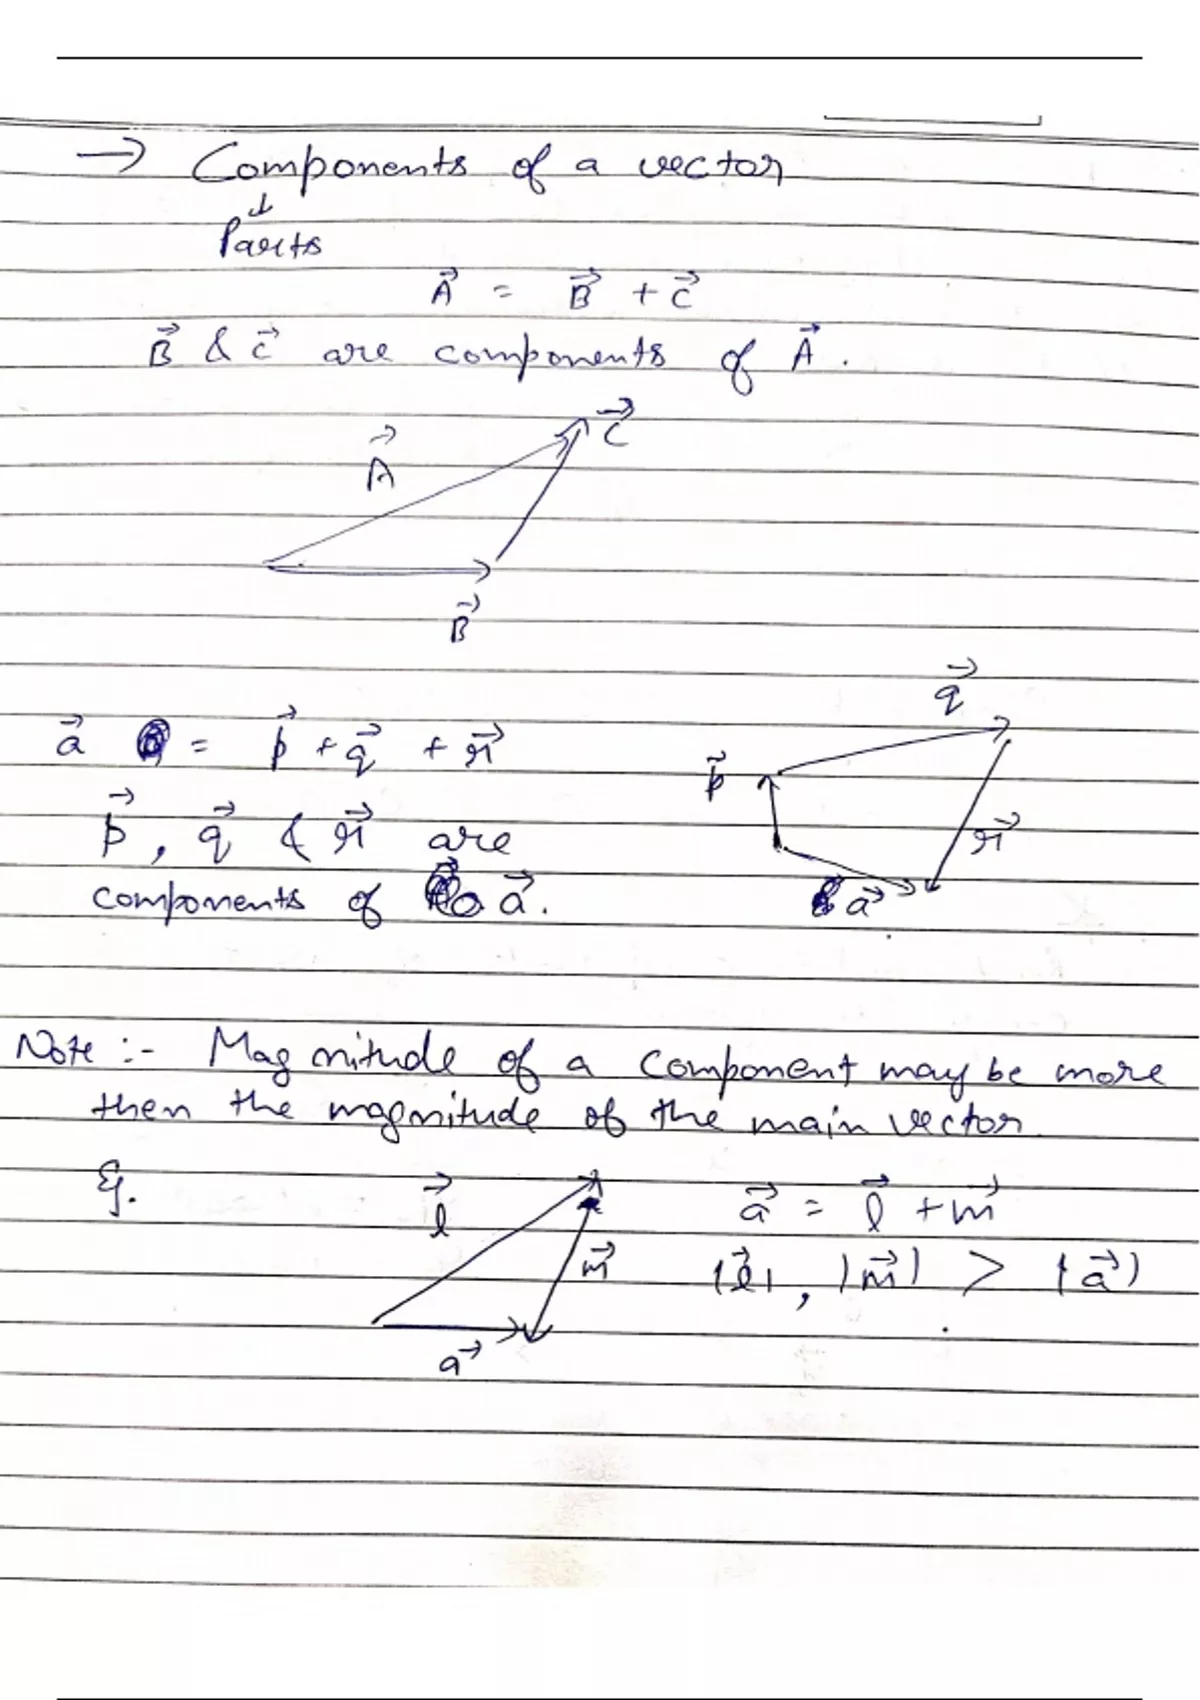 → Components of a vector
↓
Parts
A⃗ = B⃗ + C⃗
B⃗ & C⃗ are components of A⃗.
C⃗
A⃗
B⃗
q⃗
a⃗ = p⃗ + q⃗ + r⃗
p⃗
p⃗, q⃗ & r⃗ are
r⃗
components of a⃗.
a⃗
Note :- Magnitude of a component may be more
then the magnitude of the main vector
Eg.
l⃗
a⃗ = l⃗ + m⃗
m⃗
|l⃗|, |m⃗| > |a⃗|
a⃗